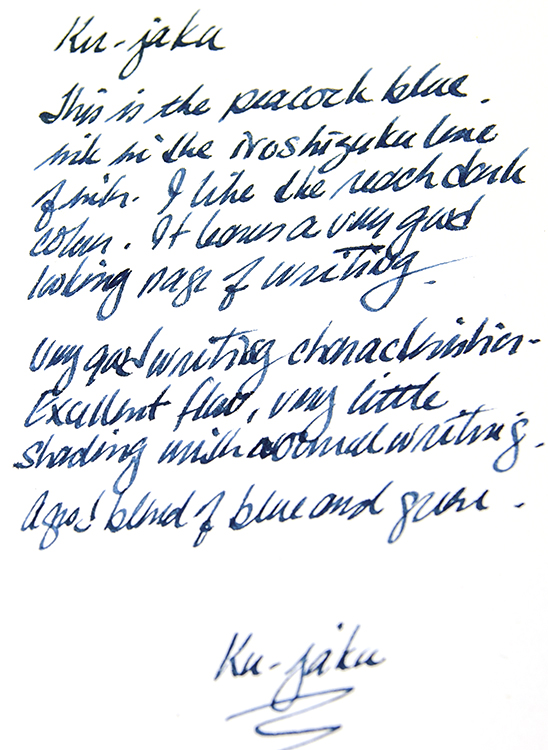 Ku-jaku
This is the peacock blue.
ink in the iroshizuku line
of inks. I like the reach dark
colour. It leaves a very good
looking page of writing.
Very good writing characteristics-
Excellent flow, very little
shading with normal writing.
A good blend of blue and green.
Ku-jaku